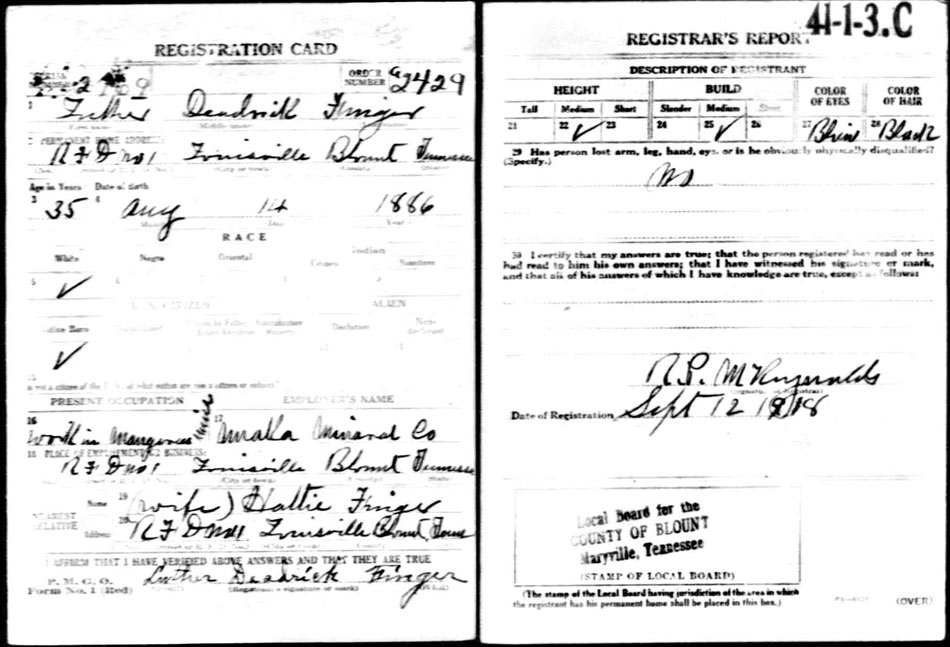 REGISTRATION CARD
SERIAL NUMBER 2 769 ORDER NUMBER A2429
1 Luther Deadrick Finger
2 PERMANENT HOME ADDRESS:
R F D no 1 Louisville Blount Tennessee
Age in Years Date of Birth
3 35 4 Aug 14 1886
Month Day Year
RACE
White Negro Oriental Indian
Citizen Noncitizen
5 ✓ 6
U. S. CITIZEN ALIEN
Native Born Naturalized Citizen by Father's Naturalization Before Registrant's Majority Declarant Non-declarant
✓
15
If not a citizen of the U. S., of what nation are you a citizen or subject?
PRESENT OCCUPATION EMPLOYER'S NAME
16 work in Manganese mine 17 Mineral Co
18 PLACE OF EMPLOYMENT OR BUSINESS:
R F D no 1 Louisville Blount Tennessee
NEAREST RELATIVE Name 19 (wife) Hattie Finger
Address 20 R F D no 1 Louisville Blount Tenn
I AFFIRM THAT I HAVE VERIFIED ABOVE ANSWERS AND THAT THEY ARE TRUE
P. M. G. O. Form No. 1 (Red) Luther Deadrick Finger
(Registrant's signature or mark) (OVER)
41-1-3.C
REGISTRAR'S REPORT
DESCRIPTION OF REGISTRANT
HEIGHT BUILD COLOR OF EYES COLOR OF HAIR
Tall Medium Short Slender Medium Stout
21 22 ✓ 23 24 25 ✓ 26 27 Blue 28 Black
29 Has person lost arm, leg, hand, eye, or is he obviously physically disqualified?
(Specify.)
No
30 I certify that my answers are true; that the person registered has read or has
had read to him his own answers; that I have witnessed his signature or mark,
and that all of his answers of which I have knowledge are true, except as follows:
R.P. McReynolds
(Signature of Registrar)
Date of Registration Sept 12 1918
Local Board for the
COUNTY OF BLOUNT
Maryville, Tennessee
(STAMP OF LOCAL BOARD)
(The stamp of the Local Board having jurisdiction of the area in which
the registrant has his permanent home shall be placed in this box.)
(OVER)